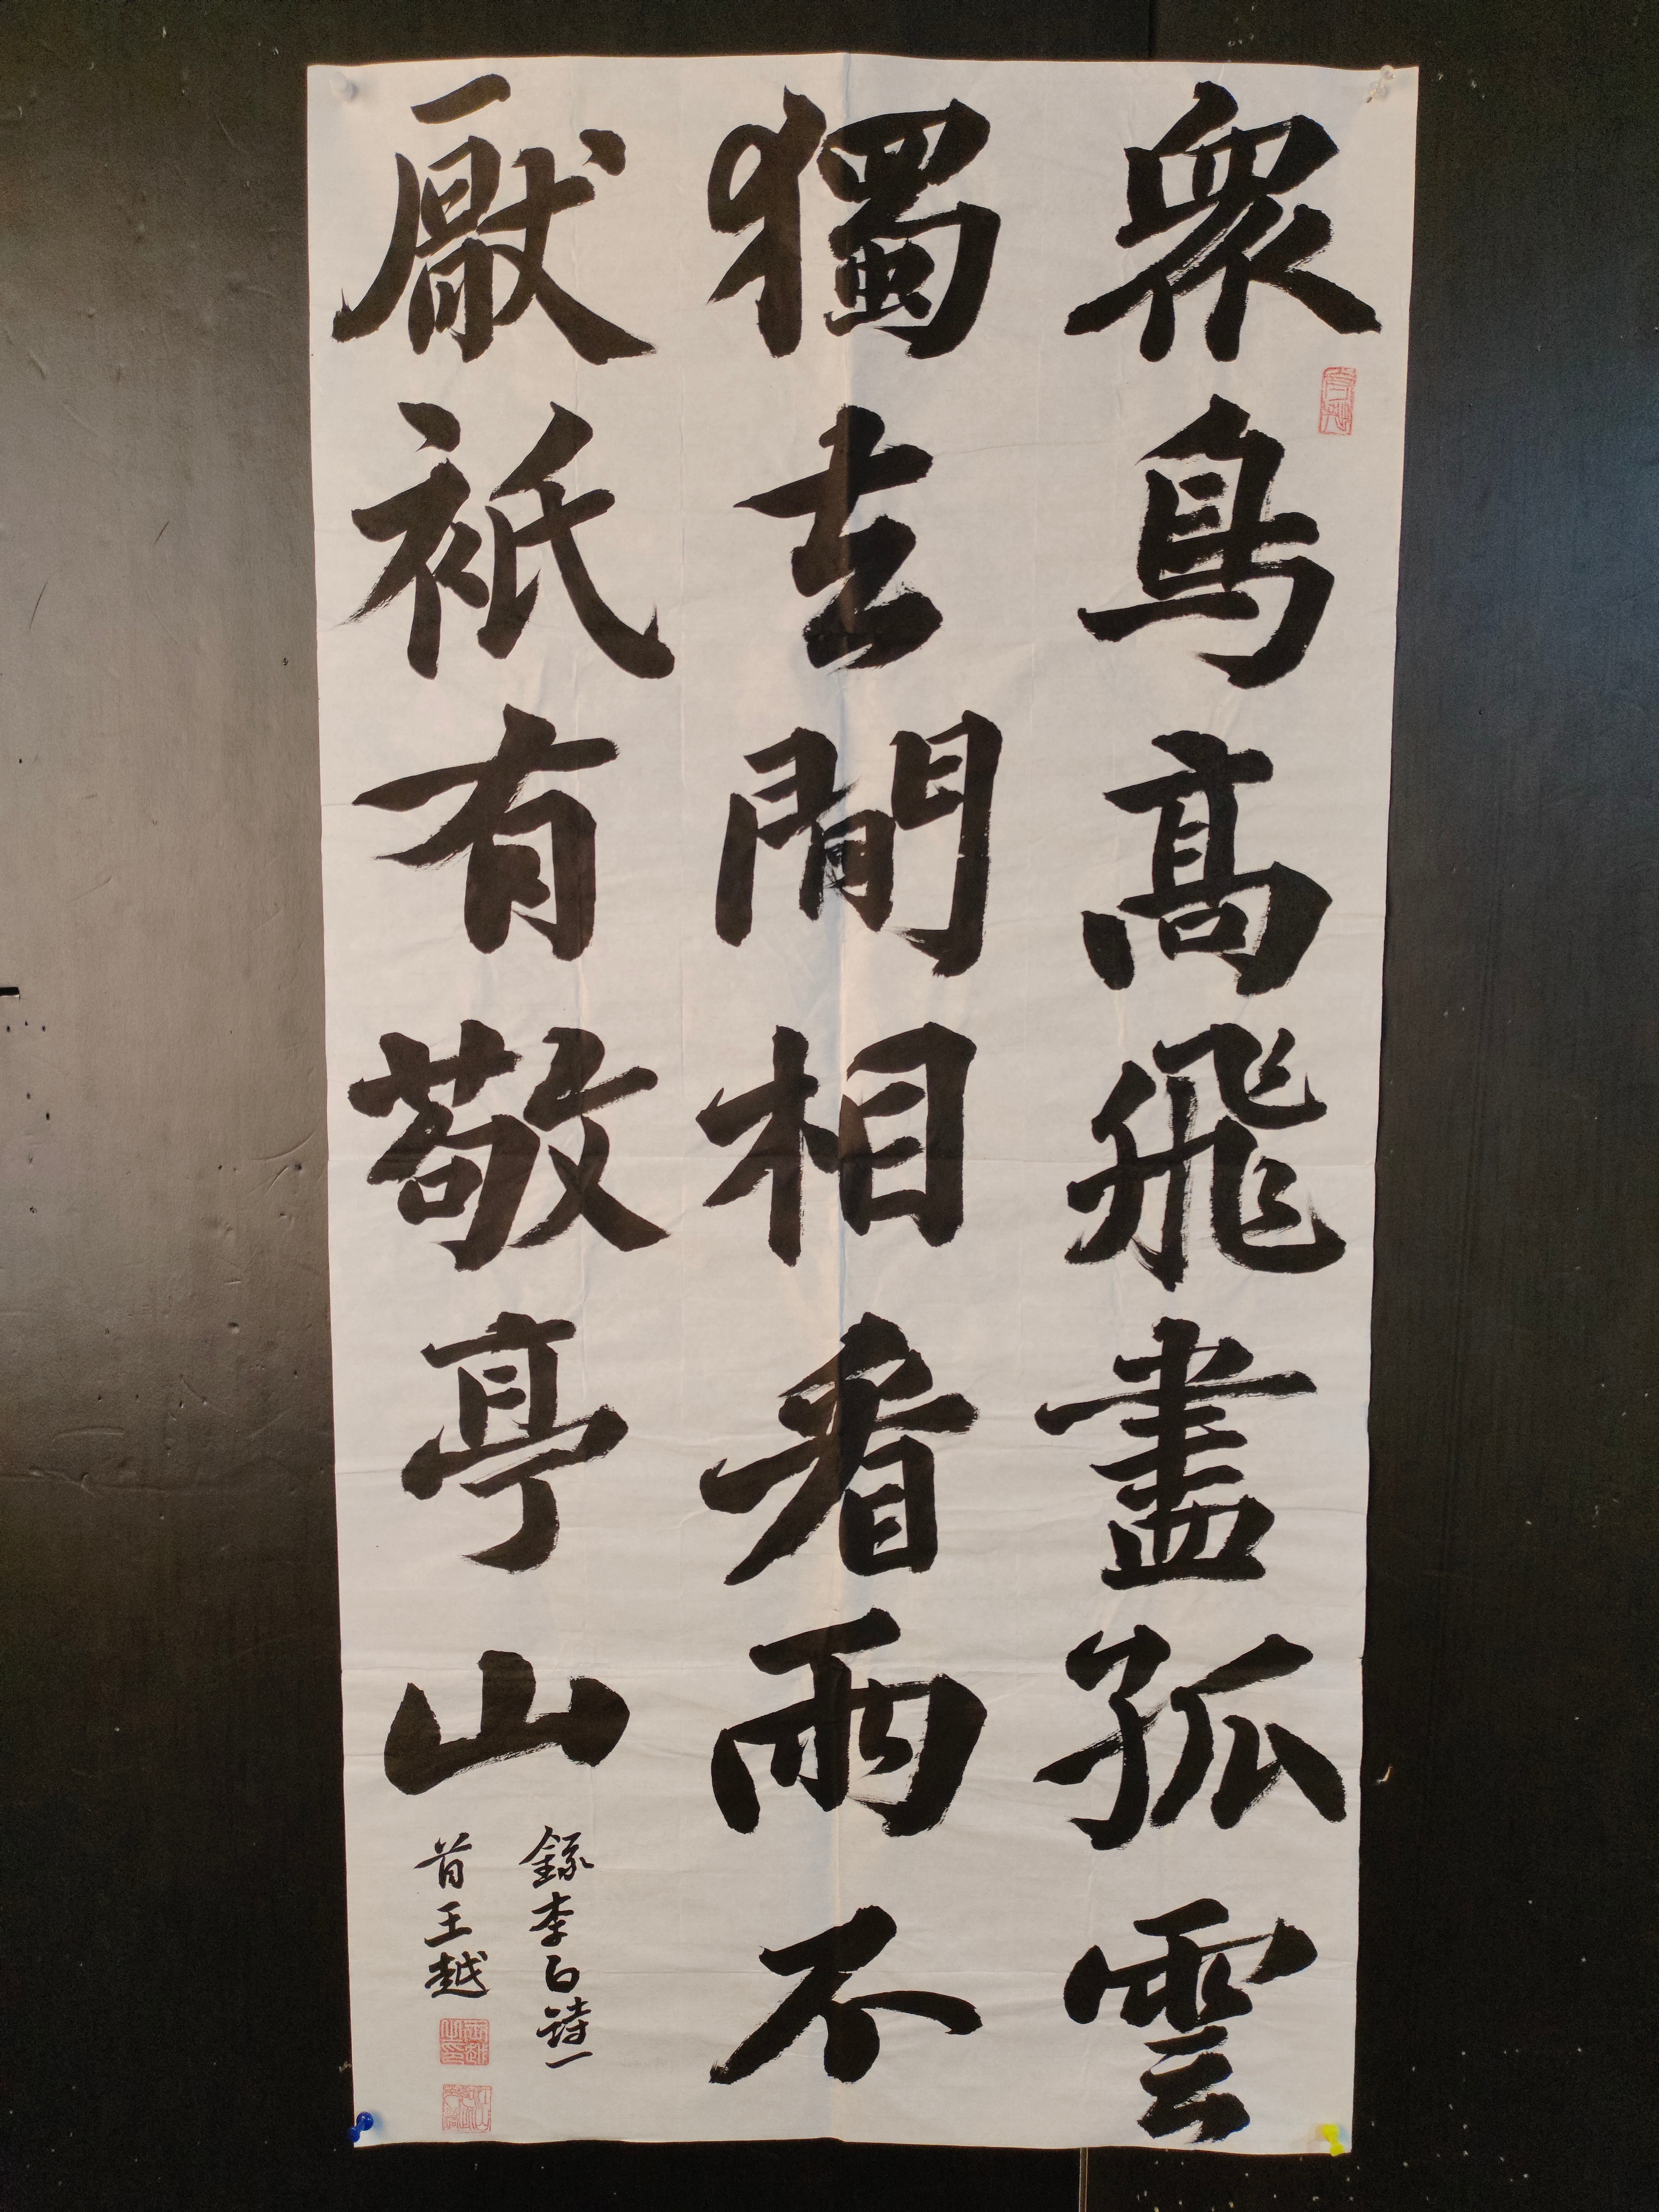 眾鳥高飛盡孤雲
獨去閒相看兩不
厭祇有敬亭山
錄李白詩一
首王越